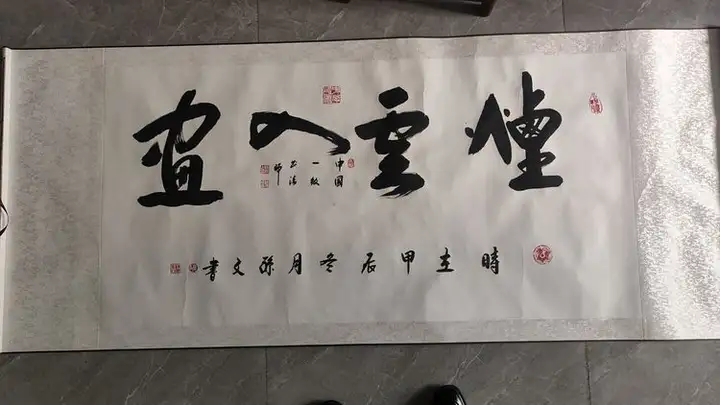 煙雲入畫
中国
一级
书法
师
時在甲辰冬月孫文書